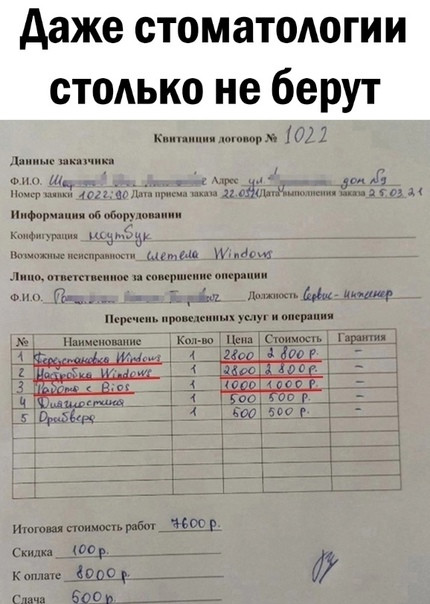 Даже стоматологии
столько не берут
Квитанция договор № 1022
Данные заказчика
Ф.И.О. Адрес ул дом №9
Номер заявки 1022:90 Дата приема заказа 22.03 Дата выполнения заказа 25.03.21
Информация об оборудовании
Конфигурация ноутбук
Возможные неисправности слетела Windows
Лицо, ответственное за совершение операции
Ф.И.О. Должность Сервис-инженер
Перечень проведенных услуг и операция
№ Наименование Кол-во Цена Стоимость Гарантия
1 Переустановка Windows 1 2800 2800 р. –
2 Настройка Windows 1 2800 2800 р. –
3 Работа с Bios 1 1000 1000 р. –
4 Диагностика 1 500 500 р. –
5 Драйвера 1 500 500 р. –
Итоговая стоимость работ 7600 р.
Скидка 100 р.
К оплате 8000 р.
Сдача 500 р.